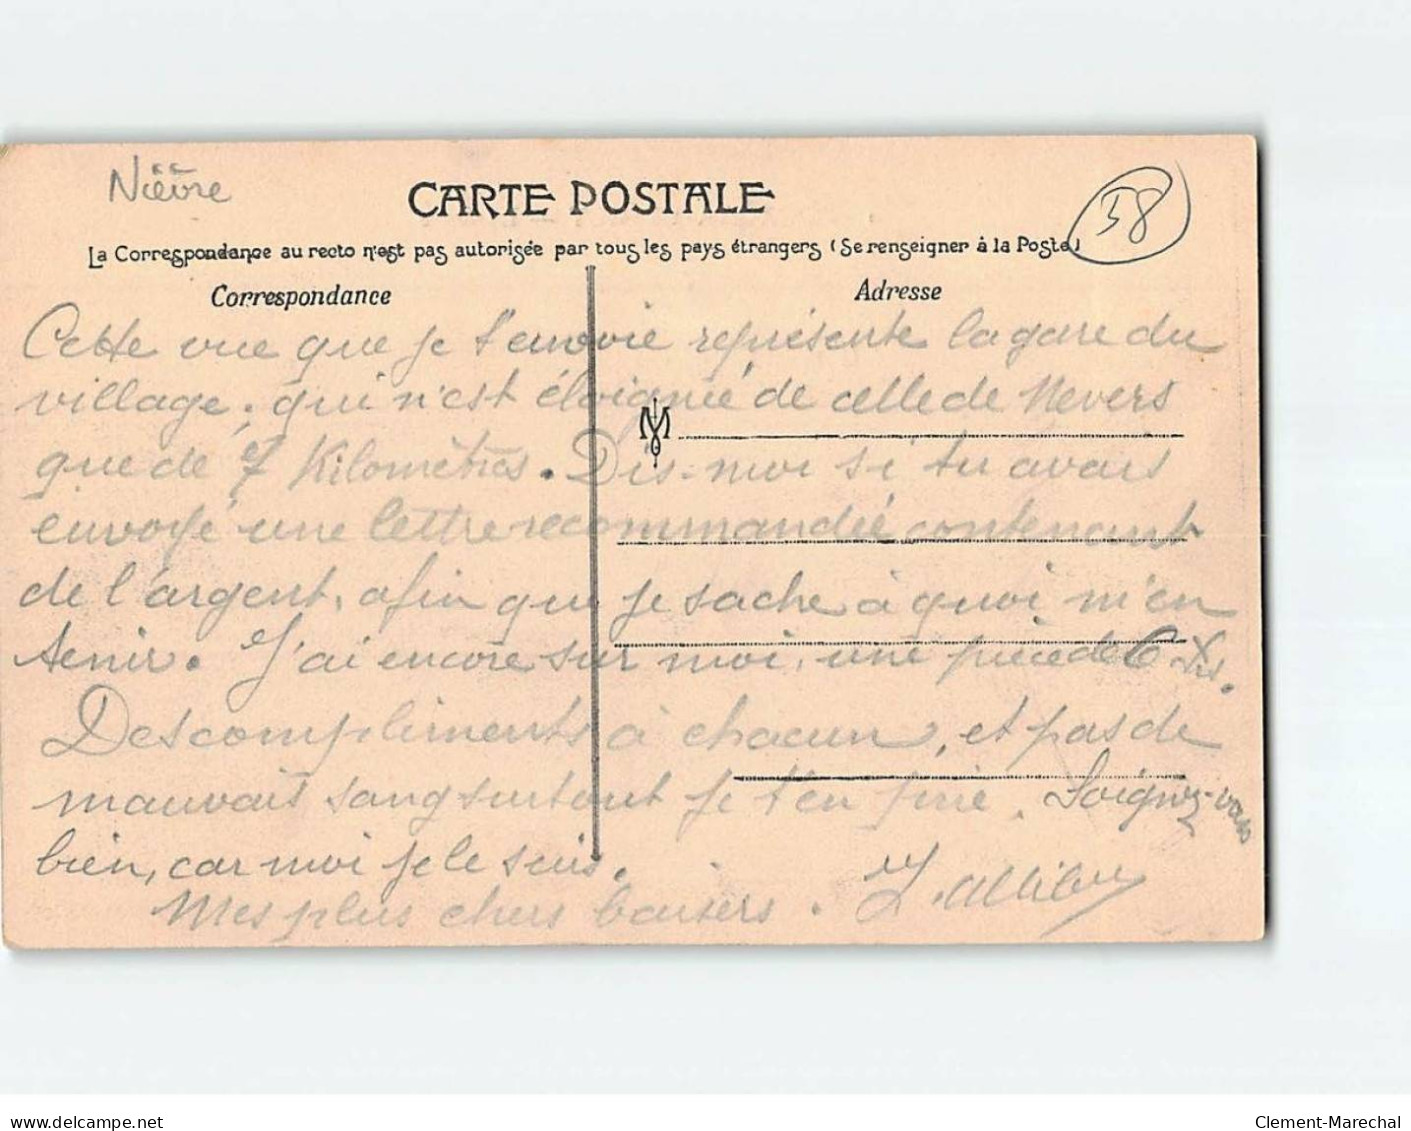 Nièvre
CARTE POSTALE
58
La Correspondance au recto n'est pas autorisée par tous les pays étrangers (Se renseigner à la Poste)
Correspondance
Adresse
Cette vue que je t'envoie représente la gare du
village, qui n'est éloignée de celle de Nevers
que de 7 Kilomètres. Dis-moi si tu avais
envoyé une lettre recommandée contenant
de l'argent, afin que je sache à quoi m'en
tenir. J'ai encore sur moi, une pièce de
Des compliments à chacun, et pas de
mauvais sang surtout je t'en prie. Soignez-vous
bien, car moi je le suis.
Mes plus chers baisers.
delcampe.net
Clement-Marechal